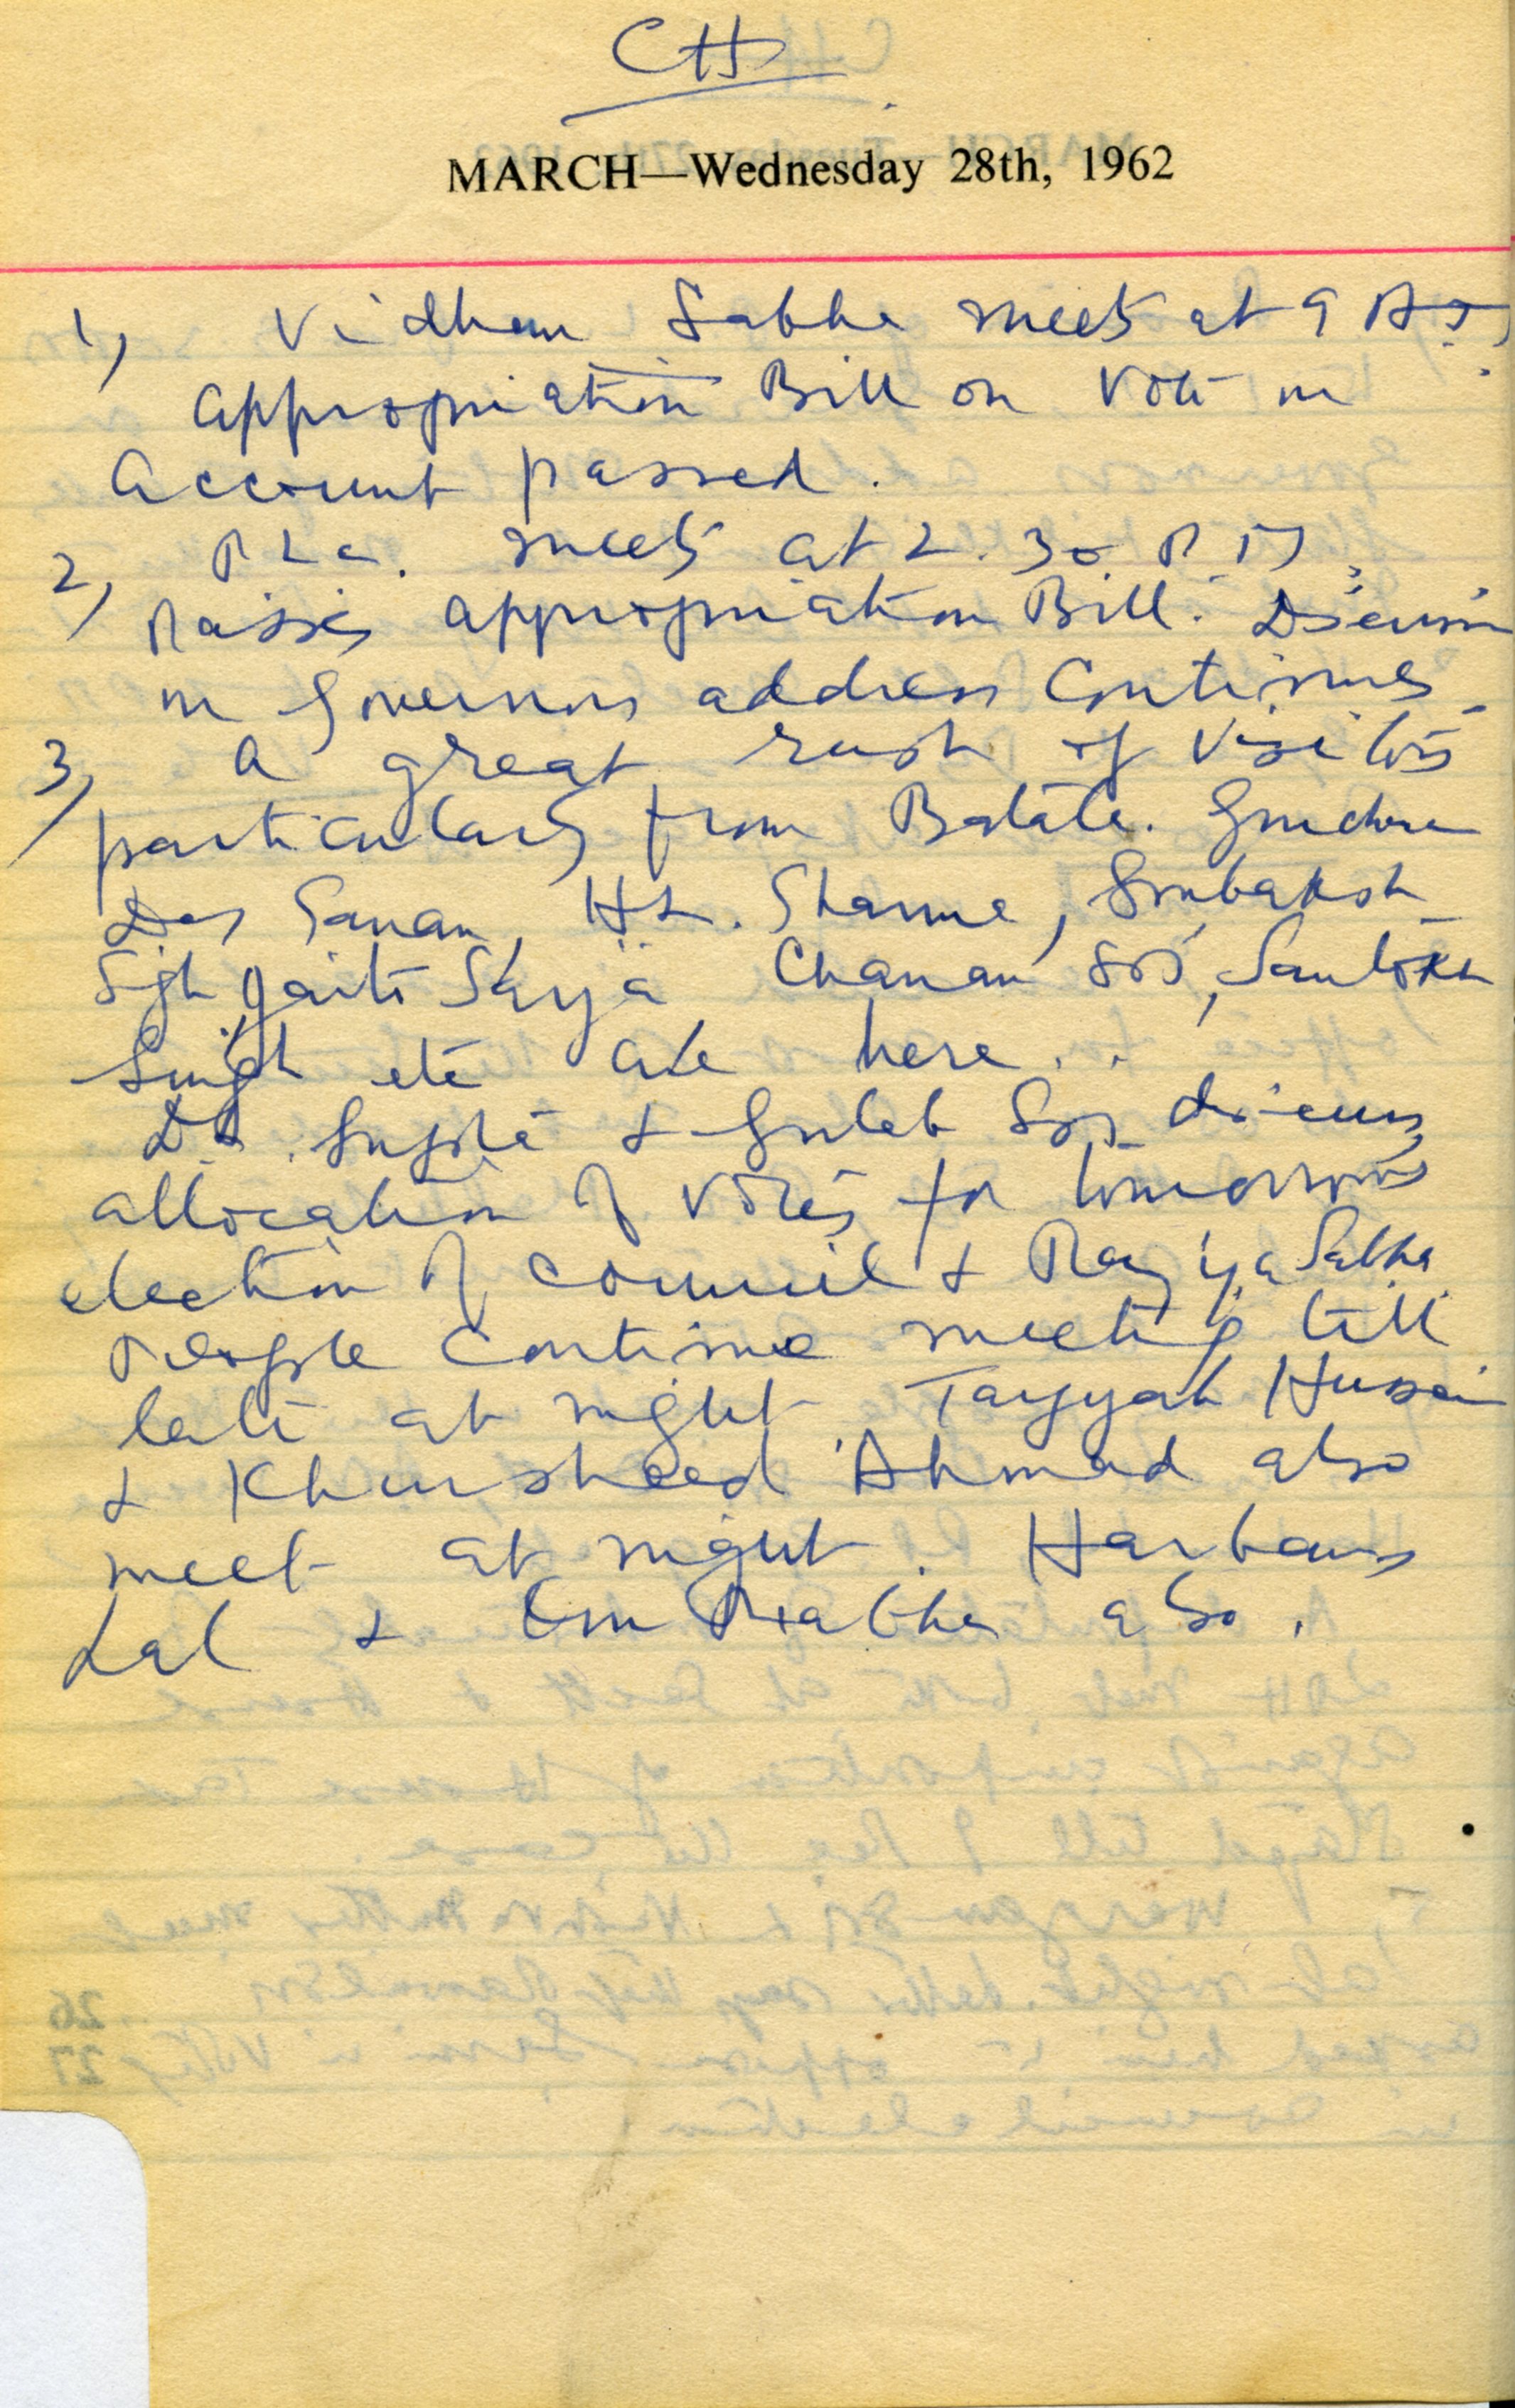 CH
MARCH—Wednesday 28th, 1962
1, Vidhan Sabha meets at 9 A.M.
Appropriation Bill on Vote on
Account passed.
2, P L C. meets at 2.30 P.M.
Passes appropriation Bill. Discussion
on Governors address Continues.
3, A great rush of Visitors
particularly from Batala. Gurcharan
Das Sanan, H L. Sharma, Gurbaksh
Sgh Chanan Sgh, Santokh
Singh etc are here..
Dr. Gupta & Gulab Sgh discuss
allocation of votes for tomorrows
election of Council & Rajya Sabha.
People Continue meeting till
late at night Tayyab Husain
& Khursheed Ahmad also
meet at night. Harbans
Lal & Om Prabha also.